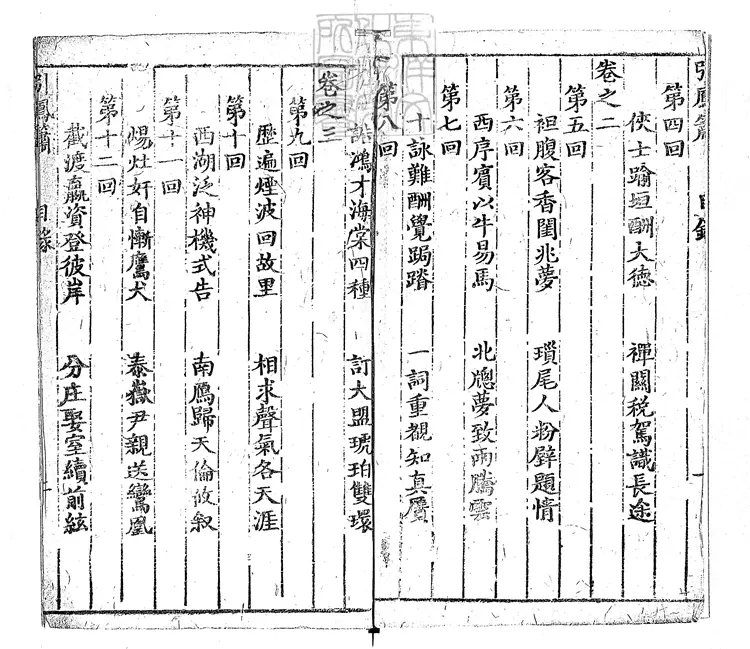 引鳳簫 目錄
第四回
俠士踰垣酬大德 禪關稅駕識長途
卷之二
第五回
袒腹客香閨兆夢 瑣尾人粉壁題情
第六回
西序賓以牛易馬 北牕夢致雨騰雲
第七回
十詠難酬覺跼蹐 一詞重覩知真贋
第八回
鴻才海棠四種 訂大盟琥珀雙環
卷之三
第九回
歷遍煙波回故里 相求聲氣各天涯
第十回
西湖泛神機式告 南鴈歸天倫攸叙
第十一回
惕灶奸自慚鷹犬 泰嶽尹親送鸞凰
第十二回
截渡贏資登彼岸 分庄娶室續前絃
引鳳簫 目錄